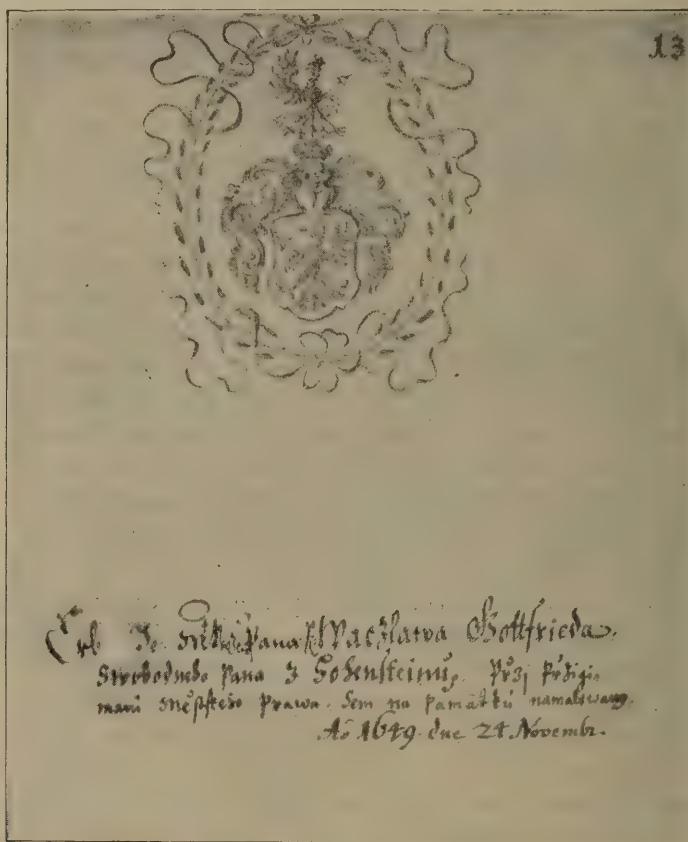 13
Erb Je Pana Waczlawa Gottfrieda.
Swobodneho Pana z Hohensteinu, Przj Przigi-
manii Mestskeho Prawa. Sem na Pamatku namalowany.
Ao 1649. dne 24 Novembr.